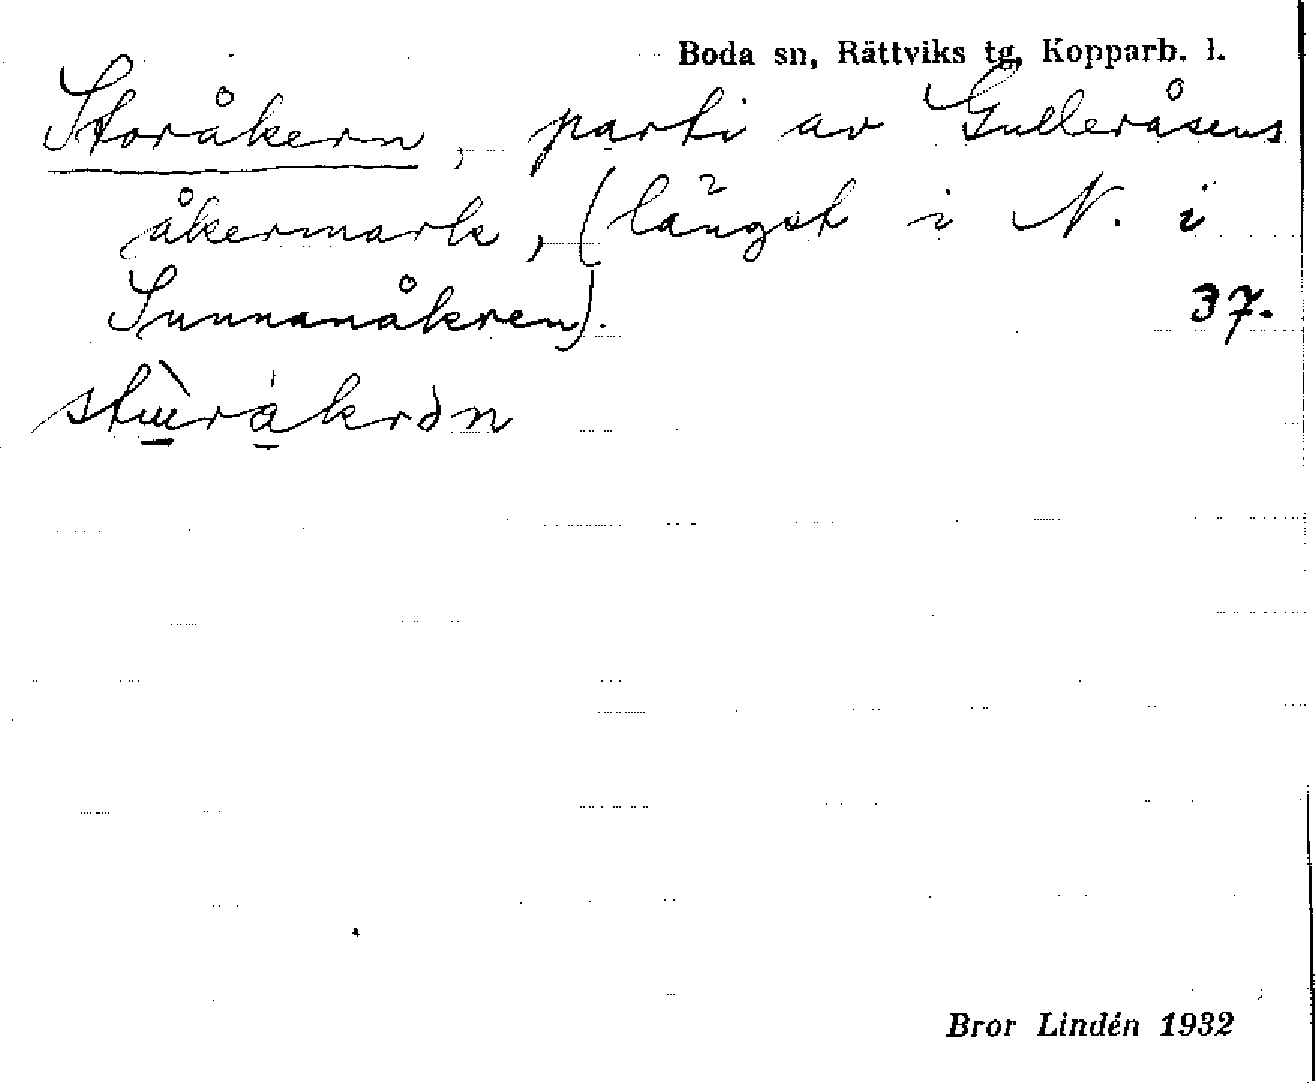 Boda sn, Rättviks tg, Kopparb. l.
Storåkern, parti av Gulleråsens
åkermark, (längst i N. i
Sunnanåkren). 37.
Bror Lindén 1932